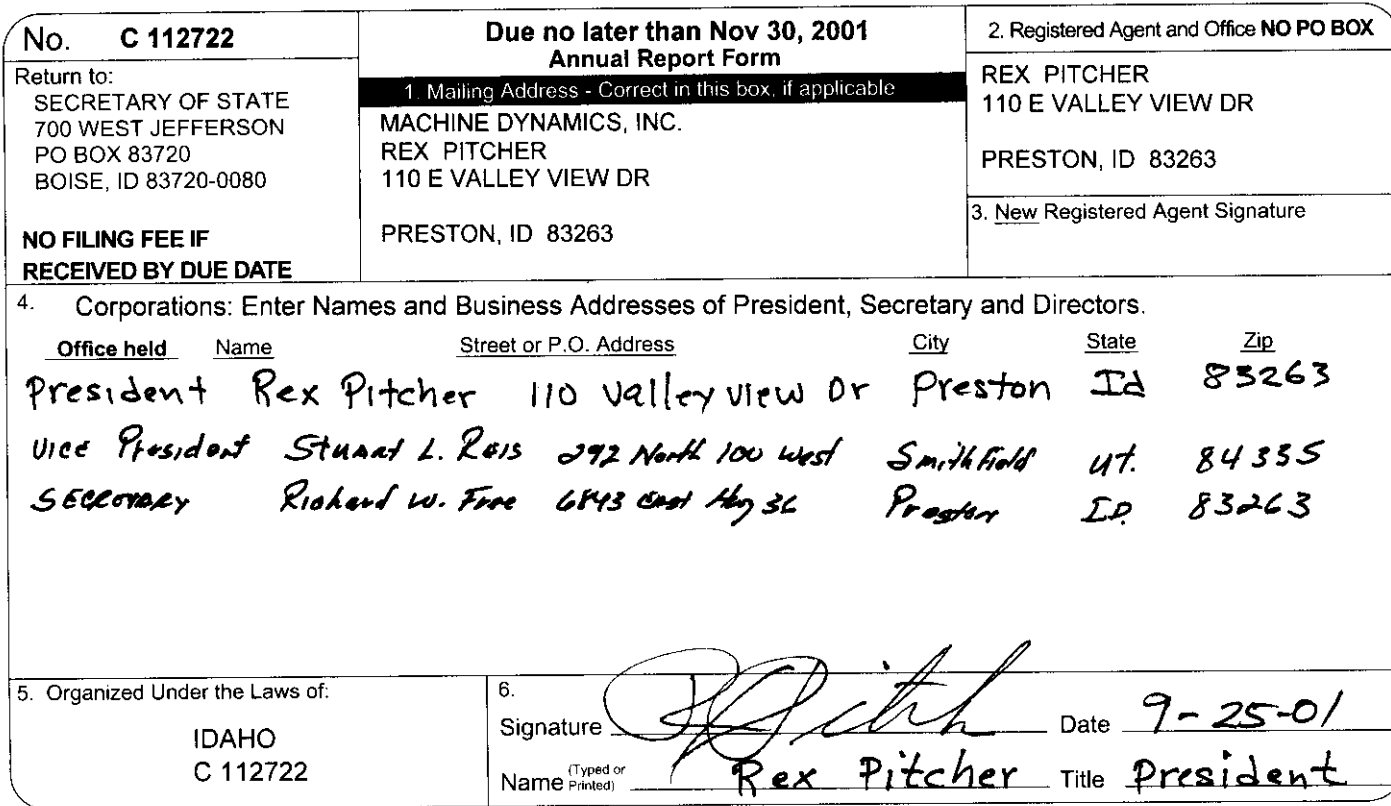 No. C 112722
Return to:
SECRETARY OF STATE
700 WEST JEFFERSON
PO BOX 83720
BOISE, ID 83720-0080
NO FILING FEE IF
RECEIVED BY DUE DATE
Due no later than Nov 30, 2001
Annual Report Form
1. Mailing Address - Correct in this box, if applicable
MACHINE DYNAMICS, INC.
REX PITCHER
110 E VALLEY VIEW DR
PRESTON, ID 83263
2. Registered Agent and Office NO PO BOX
REX PITCHER
110 E VALLEY VIEW DR
PRESTON, ID 83263
3. New Registered Agent Signature
4. Corporations: Enter Names and Business Addresses of President, Secretary and Directors.
Office held Name Street or P.O. Address City State Zip
President Rex Pitcher 110 Valley View Dr Preston Id 83263
Vice President Stuart L. 292 North 100 West Smithfield Ut. 84335
Secretary Richard W. 6843 East Hwy 36 Preston ID. 83263
5. Organized Under the Laws of:
IDAHO
C 112722
6.
Signature Date 9-25-01
Name (Typed or Printed) Rex Pitcher Title President